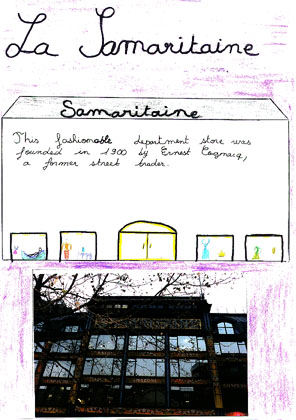 La Samaritaine
Samaritaine
This fashionable department store was
founded in 1900 by Ernest Cognacq,
a former street trader.